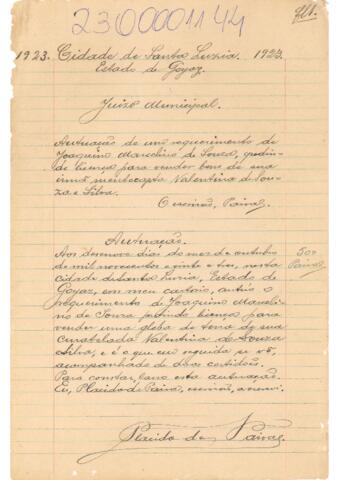 2300001144
fl1.
1923. Cidade de Santa Luzia. 1923.
Estado de Goyaz.
Juizo Municipal.
Autuação de um requerimento de
Joaquim Marcelino de Souza, pedin-
do licença para vender bens de sua
irmã, mentecapta Valentina de Sou-
za e Silva.
O escrivão, Paiva.
Autuação.
Aos desenove dias do mez de outubro
de mil novecentos e vinte e tres, nesta
cidade de Santa Luzia, Estado de
Goyaz, em meu cartorio, autúo o
requerimento de Joaquim Marceli-
no de Souza pedindo licença para
vender uma gleba de terra de sua
curatelada Valentina de Souza
Silva, e é o que em seguida se vê,
acompanhado de duas certidões.
Para constar, faço esta autuação.
Eu, Placido de Paiva, escrivão, a escrevi.
500
Paiva
Placido de Paiva.